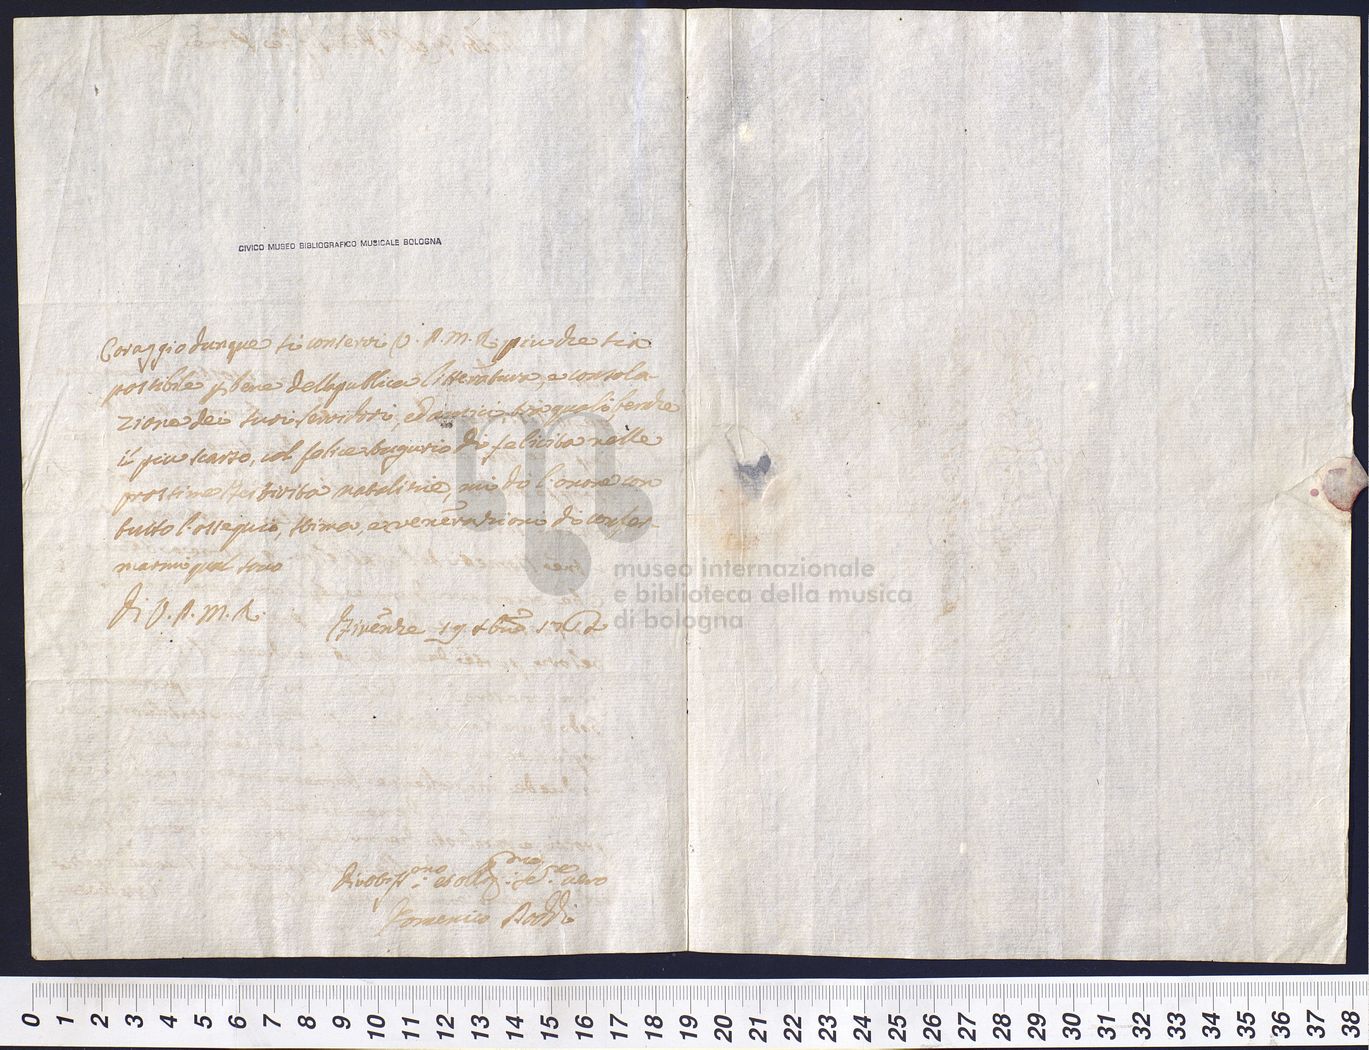 CIVICO MUSEO BIBLIOGRAFICO MUSICALE BOLOGNA
Coraggio dunque si conservi V. P. M. R. piu che sia
possibile p bene della publica litteratura, e consola-
zione dei suoi servidori, ed amici, tra quali, benche
il piu scarso, col felice augurio di felicità nelle
prossime festività natalizie, mi do l'onore con
tutto l'ossequio, stima, e venerazione di confer-
marmi qual sono
Di V. P. M. R.
Firenze 19 Xbre
museo internazionale
e biblioteca della musica
di bologna
Domenico
0 1 2 3 4 5 6 7 8 9 10 11 12 13 14 15 16 17 18 19 20 21 22 23 24 25 26 27 28 29 30 31 32 33 34 35 36 37 38